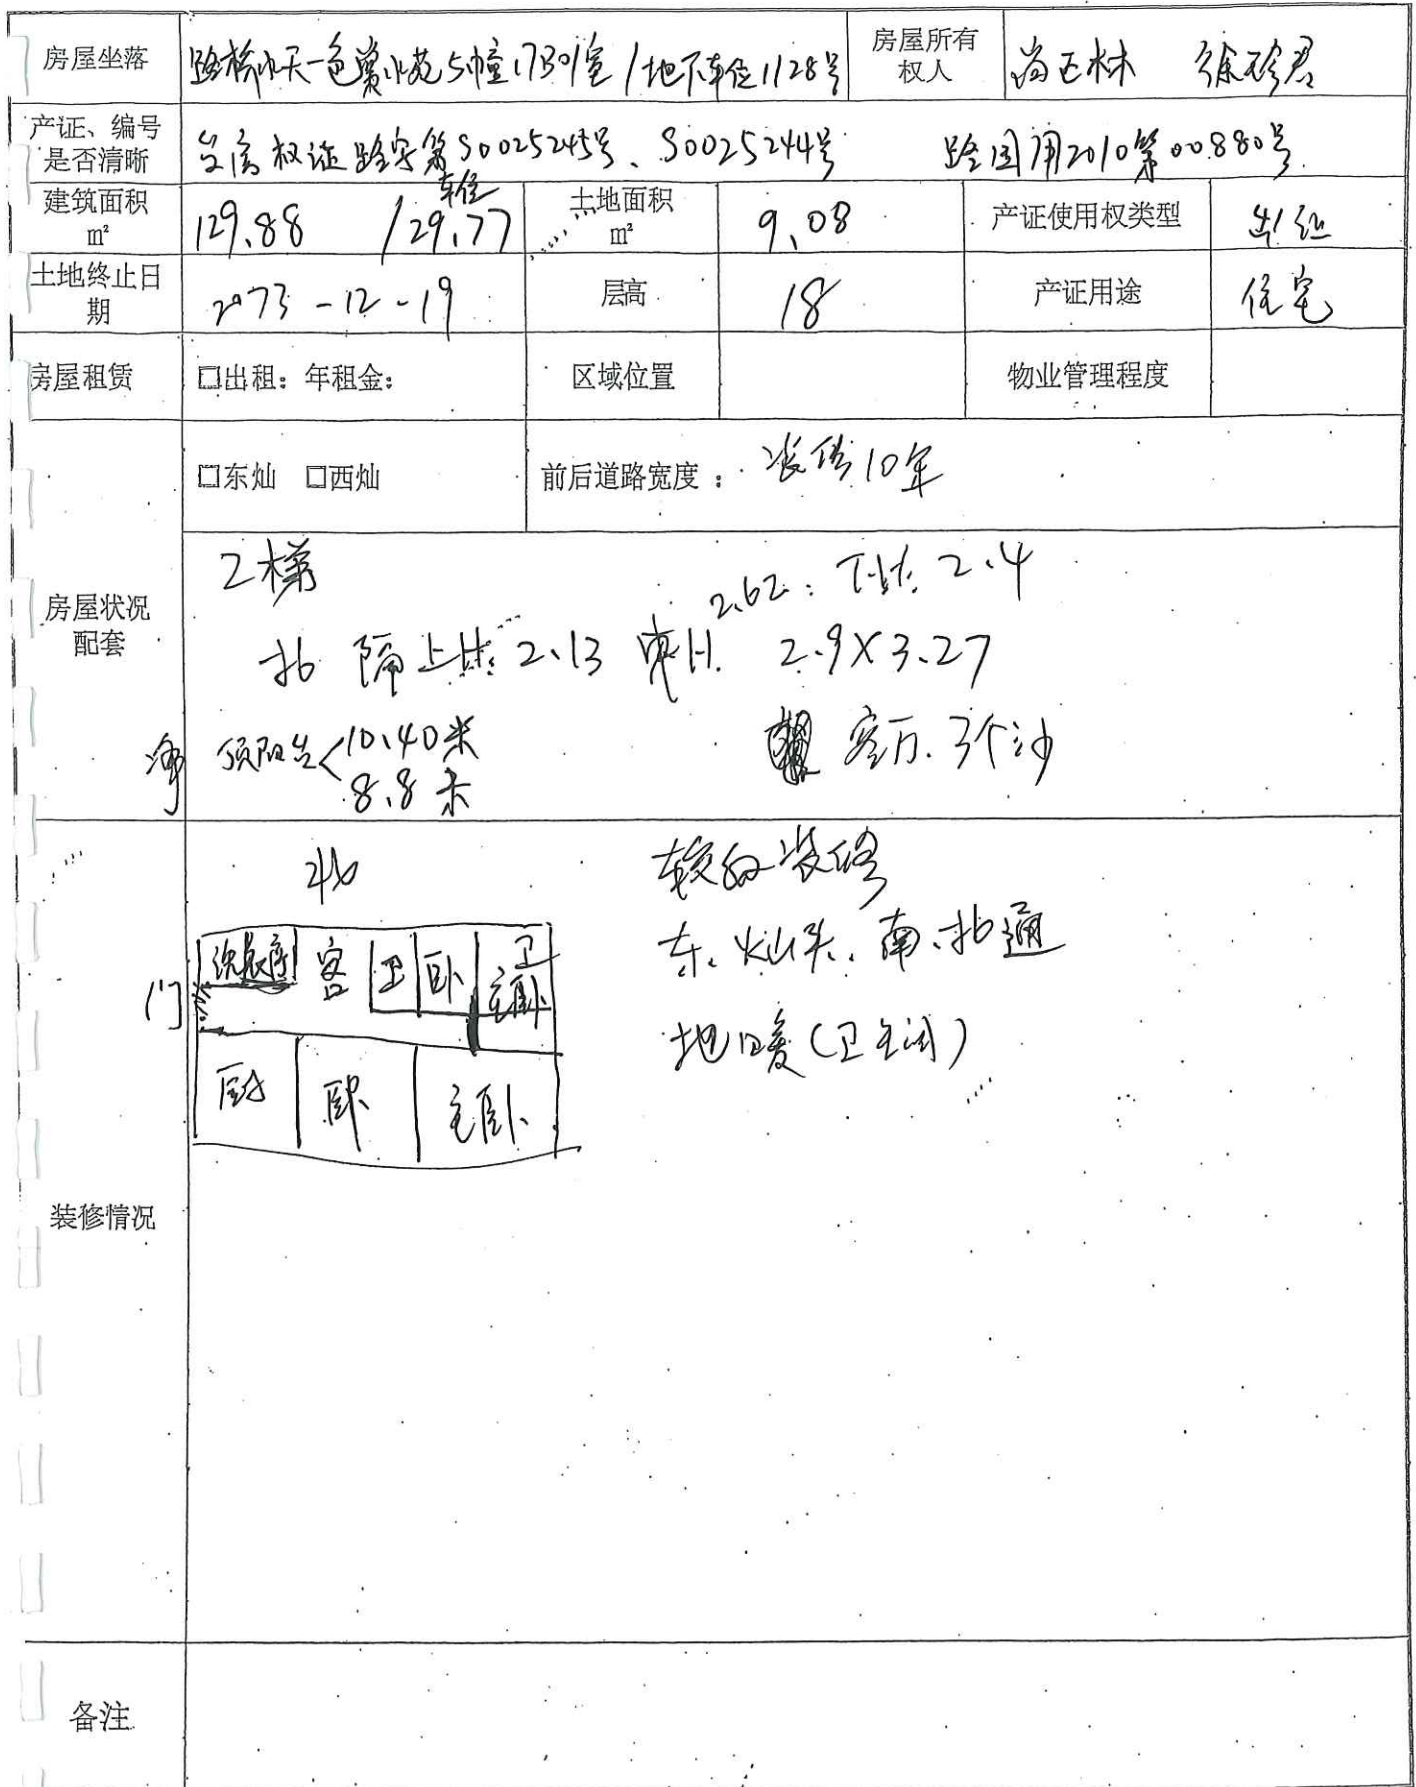 房屋坐落 路桥水天一色寓小苑5幢1730/室 /地下车位1128号 房屋所有权人 尚正林 徐珍君
产证、编号是否清晰 台房权证路字第S0025245号、S0025244号 路国用2010第00880号
建筑面积㎡ 129.88 /29.77 车位 土地面积㎡ 9.08 产证使用权类型 出让
土地终止日期 2073-12-19 层高 18 产证用途 住宅
房屋租赁 □出租：年租金： 区域位置 物业管理程度
□东灿 □西灿 前后道路宽度： 装修10年
房屋状况配套
2梯
2.62 2.4
北 隔上 2.13 2.9×3.27
净 顶阳台<10.40米 客厅.3个沙
8.8米
装修情况
北 较好装修
洗衣房 客 卫 卧 卫 主卧
东.灿头.南.北通
门
地暖(卫生间)
厨 卧 主卧
备注